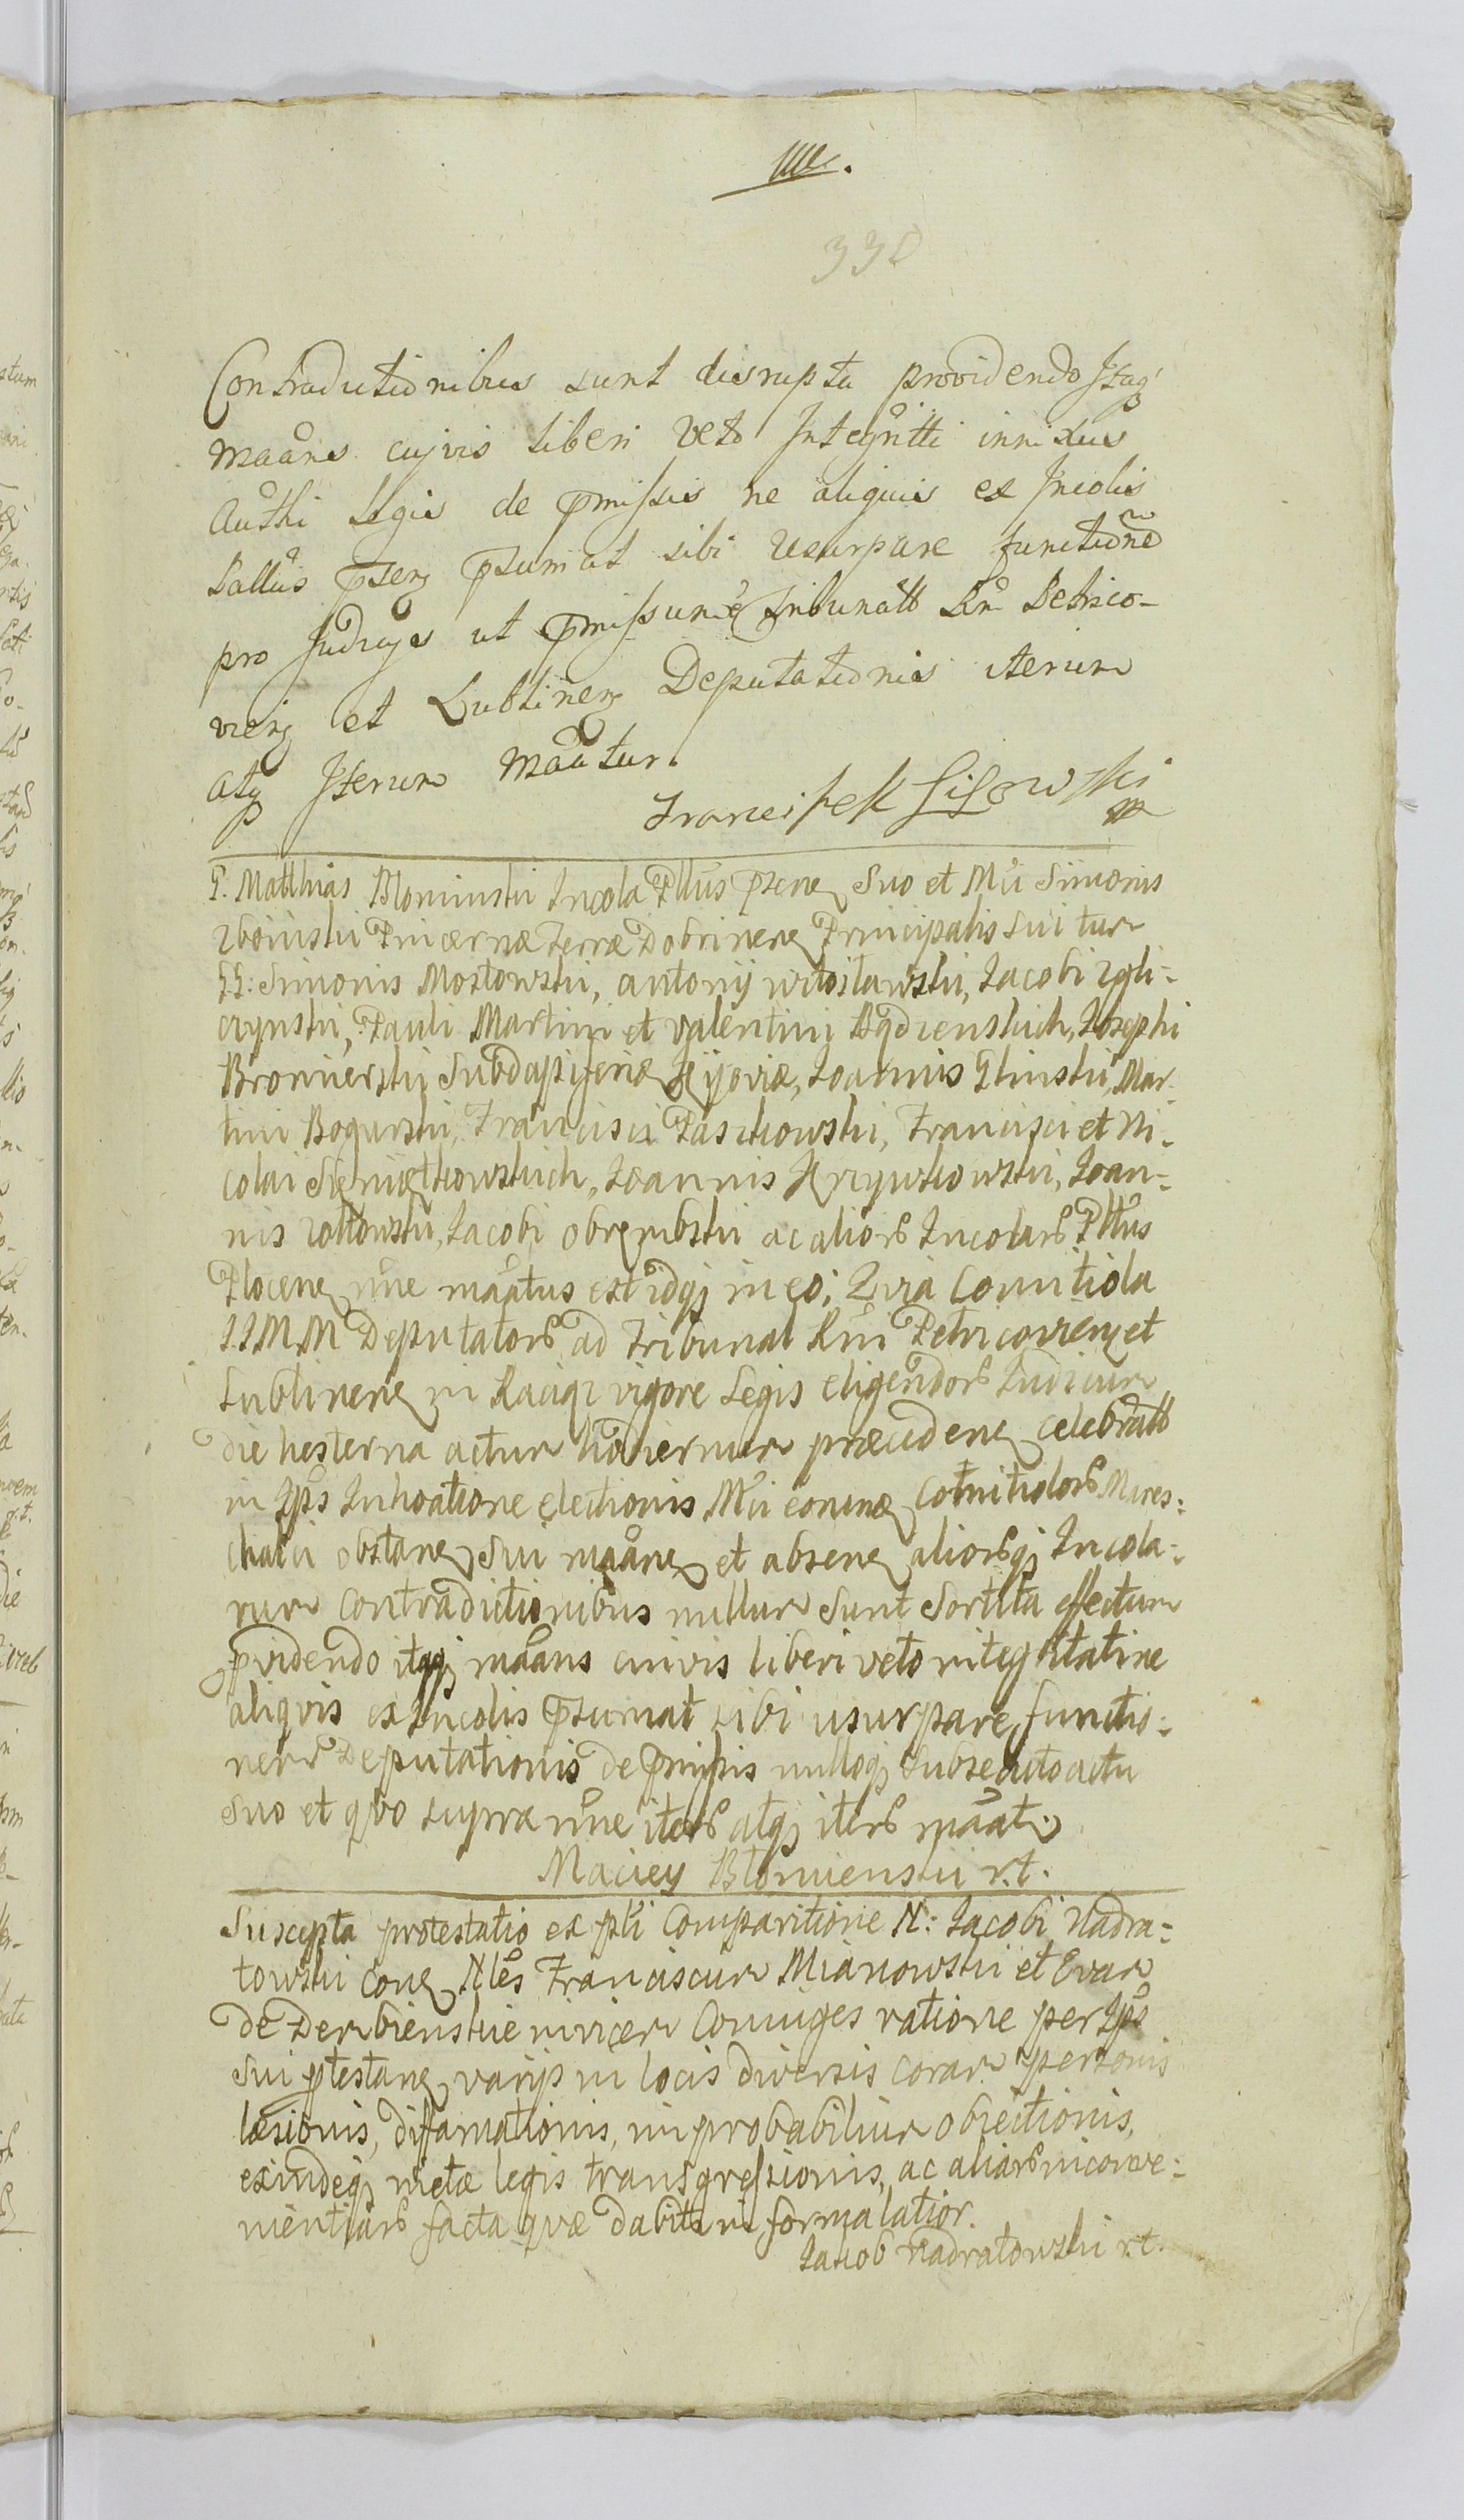 330
Contradictionibus sunt disrupta providendo Itaq
maans cujvis liberi Veto Integritti innixus
Authi Legis de pmissis ne aliquis ex Incolis
Pallus psens psumat sibi Usurpare functione
pro Judice ut pmissum e Tribunall Rni Petrico-
viens et Lublinens Deputationis iterum
atq Iterum maatur
Franciszek Lisowski
G. Matthias Blominski Incola Pllus psens Suo et Mci Simonis
Zboinski Pincernæ Terræ Dobrinens Principalis sui tum
GG: Simonis Mostowski, antonij witosławski, Jacobi zgli-
czynski, Pauli Martini et Valentini Bądzenskich, Josephi
Broniewski Subdapiferiæ Kijoviæ, Joannis Glinski, Mar-
tini Bogurski, Francisci Paszkowski, Francisci et Ni-
colai Sieniątkowskich, Joannis Krzywkowski, Joan-
nis zołtowski, Jacobi obrembski ac alior Incolar Pllus
Plocens nne maatus est idq in eo; Qvia Comitiola
IIMM Deputator ad Tribunal Rni Petricoviens et
Lublinens in Raciąz vigore Legis eligendor Judicum
die hesterna actum hodiernum præcedens celebratt
in Ips Inhoatione electionis Mci eorund Comitiolor Mares-
chalci obstans Sui maans et absens aliorq Incola-
rum Contradictionibus nullum Sunt Sortita effectum
pvidendo itaq maans cuivis liberi veto integritati ne
aliqvis ex Incolis psumat sibi usurpare functio-
nem Deputationis de pmissis nulloq subsecuto actu
Suo et qvo supra nne iter atq iter maat.
Maciey Błomienski r.t.
Suscepta protestatio ex pti Comparitione N: Jacobi Nadra-
towski Cone Nles Franciscum Mianowski et Evam
de Dembienskie invicem Coniuges ratione per Ips
Sui ptestans varijs in locis diversis coram personis
læsionis, difamationis, improbabilium obiectionis,
exindeq vietæ legis transgressionis, ac aliar inconve-
nientiar facta qvæ dabitr in forma latior.
Jakob Nadratowski r.t.